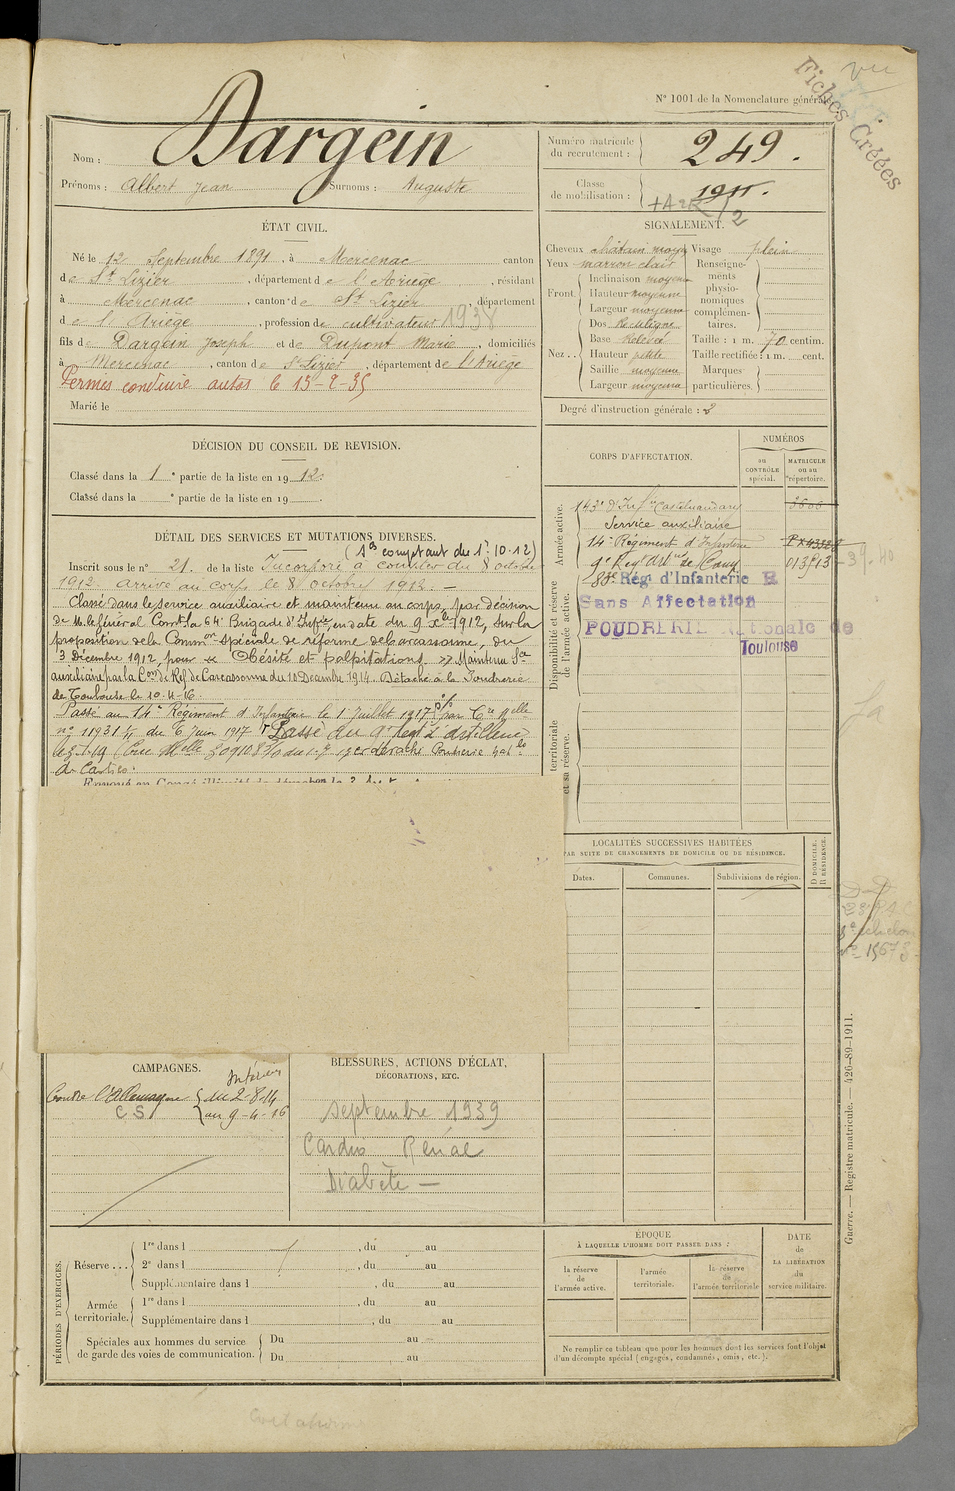 vu
Fiches Créées
N° 1001 de la Nomenclature générale
Nom : Dargein
Prénoms : Albert Jean Surnoms : Auguste
Numéro matricule du recrutement : 249.
Classe de mobilisation : 1911.
ÉTAT CIVIL.
Né le 12 Septembre 1891, à Mercenac canton
de St Lizier, département de l'Ariège, résidant
à Mercenac, canton de St Lizier, département
de l'Ariège, profession de cultivateur 1938
fils de Dargein Joseph et de Dupont Marie, domiciliés
à Mercenac, canton de St Lizier, département de l'Ariège
Permis conduire autos le 15-2-35
Marié le
SIGNALEMENT.
Cheveux châtain moyen Visage plein
Yeux marron clair Renseignements physionomiques complémentaires.
Front. Inclinaison moyenne
Hauteur moyenne
Largeur moyenne
Nez... Dos Rectiligne
Base Relevée Taille : 1 m. 70 centim.
Hauteur petite Taille rectifiée : 1 m. cent.
Saillie moyenne Marques particulières.
Largeur moyenne
Degré d'instruction générale : 3
DÉCISION DU CONSEIL DE REVISION.
Classé dans la 1e partie de la liste en 1912.
Classé dans la e partie de la liste en 19 .
DÉTAIL DES SERVICES ET MUTATIONS DIVERSES.
(Ires comptant du 1er 10-12)
Inscrit sous le n° 21. de la liste Incorporé à compter du 8 octobre
1912 arrivé au corps le 8 octobre 1912. —
Classé dans le service auxiliaire et maintenu au corps, par décision
de M. le Général Comt la 64e Brigade d'Infie, en date du 9 Xbre 1912, sur la
proposition de la Common spéciale de réforme de Carcassonne, du
3 Décembre 1912, pour « Obésité et palpitations » Maintenu Sce
auxiliaire par la Con de Réf. de Carcassonne du 10 Décembre 1914. Détaché à la Poudrerie
de Toulouse le 10-4-16.
Passé au 14e Régiment d'Infanterie le 1er Juillet 1917
n° 11931 du 6 Juin 1917 Passé au 9e Régt d'artillerie
de Castres.
CORPS D'AFFECTATION.
NUMÉROS
au CONTRÔLE spécial.
MATRICULE ou au répertoire.
Armée active.
143e d'Infie Castelnaudary 3606
Service auxiliaire
14e Régiment d'Infanterie
9e Régt Artie de Camp
Disponibilité et réserve de l'armée active.
83e Régt d'Infanterie
Sans Affectation
POUDRERIE Nationale de
Toulouse
39-40
territoriale et sa réserve.
LOCALITÉS SUCCESSIVES HABITÉES
PAR SUITE DE CHANGEMENTS DE DOMICILE OU DE RÉSIDENCE.
Dates.
Communes.
Subdivisions de région.
D DOMICILE. R RÉSIDENCE.
CAMPAGNES.
Intérieur
Contre l'Allemagne du 2-8-14
CS au 9-4-16
BLESSURES, ACTIONS D'ÉCLAT,
DÉCORATIONS, ETC.
Septembre 1939
Cardio Rénal
Diabète —
PÉRIODES D'EXERCICES.
Réserve... 1re dans l , du au
2e dans l , du au
Supplémentaire dans l , du au
Armée territoriale. 1re dans l , du au
Supplémentaire dans l , du au
Spéciales aux hommes du service de garde des voies de communication. Du au
Du au
ÉPOQUE
À LAQUELLE L'HOMME DOIT PASSER DANS :
la réserve de l'armée active.
l'armée territoriale.
la réserve de l'armée territoriale
DATE de LA LIBÉRATION du service militaire.
Ne remplir ce tableau que pour les hommes dont les services font l'objet
d'un décompte spécial (engagés, condamnés, omis, etc.).
Guerre. — Registre matricule. — 426-89-1911.